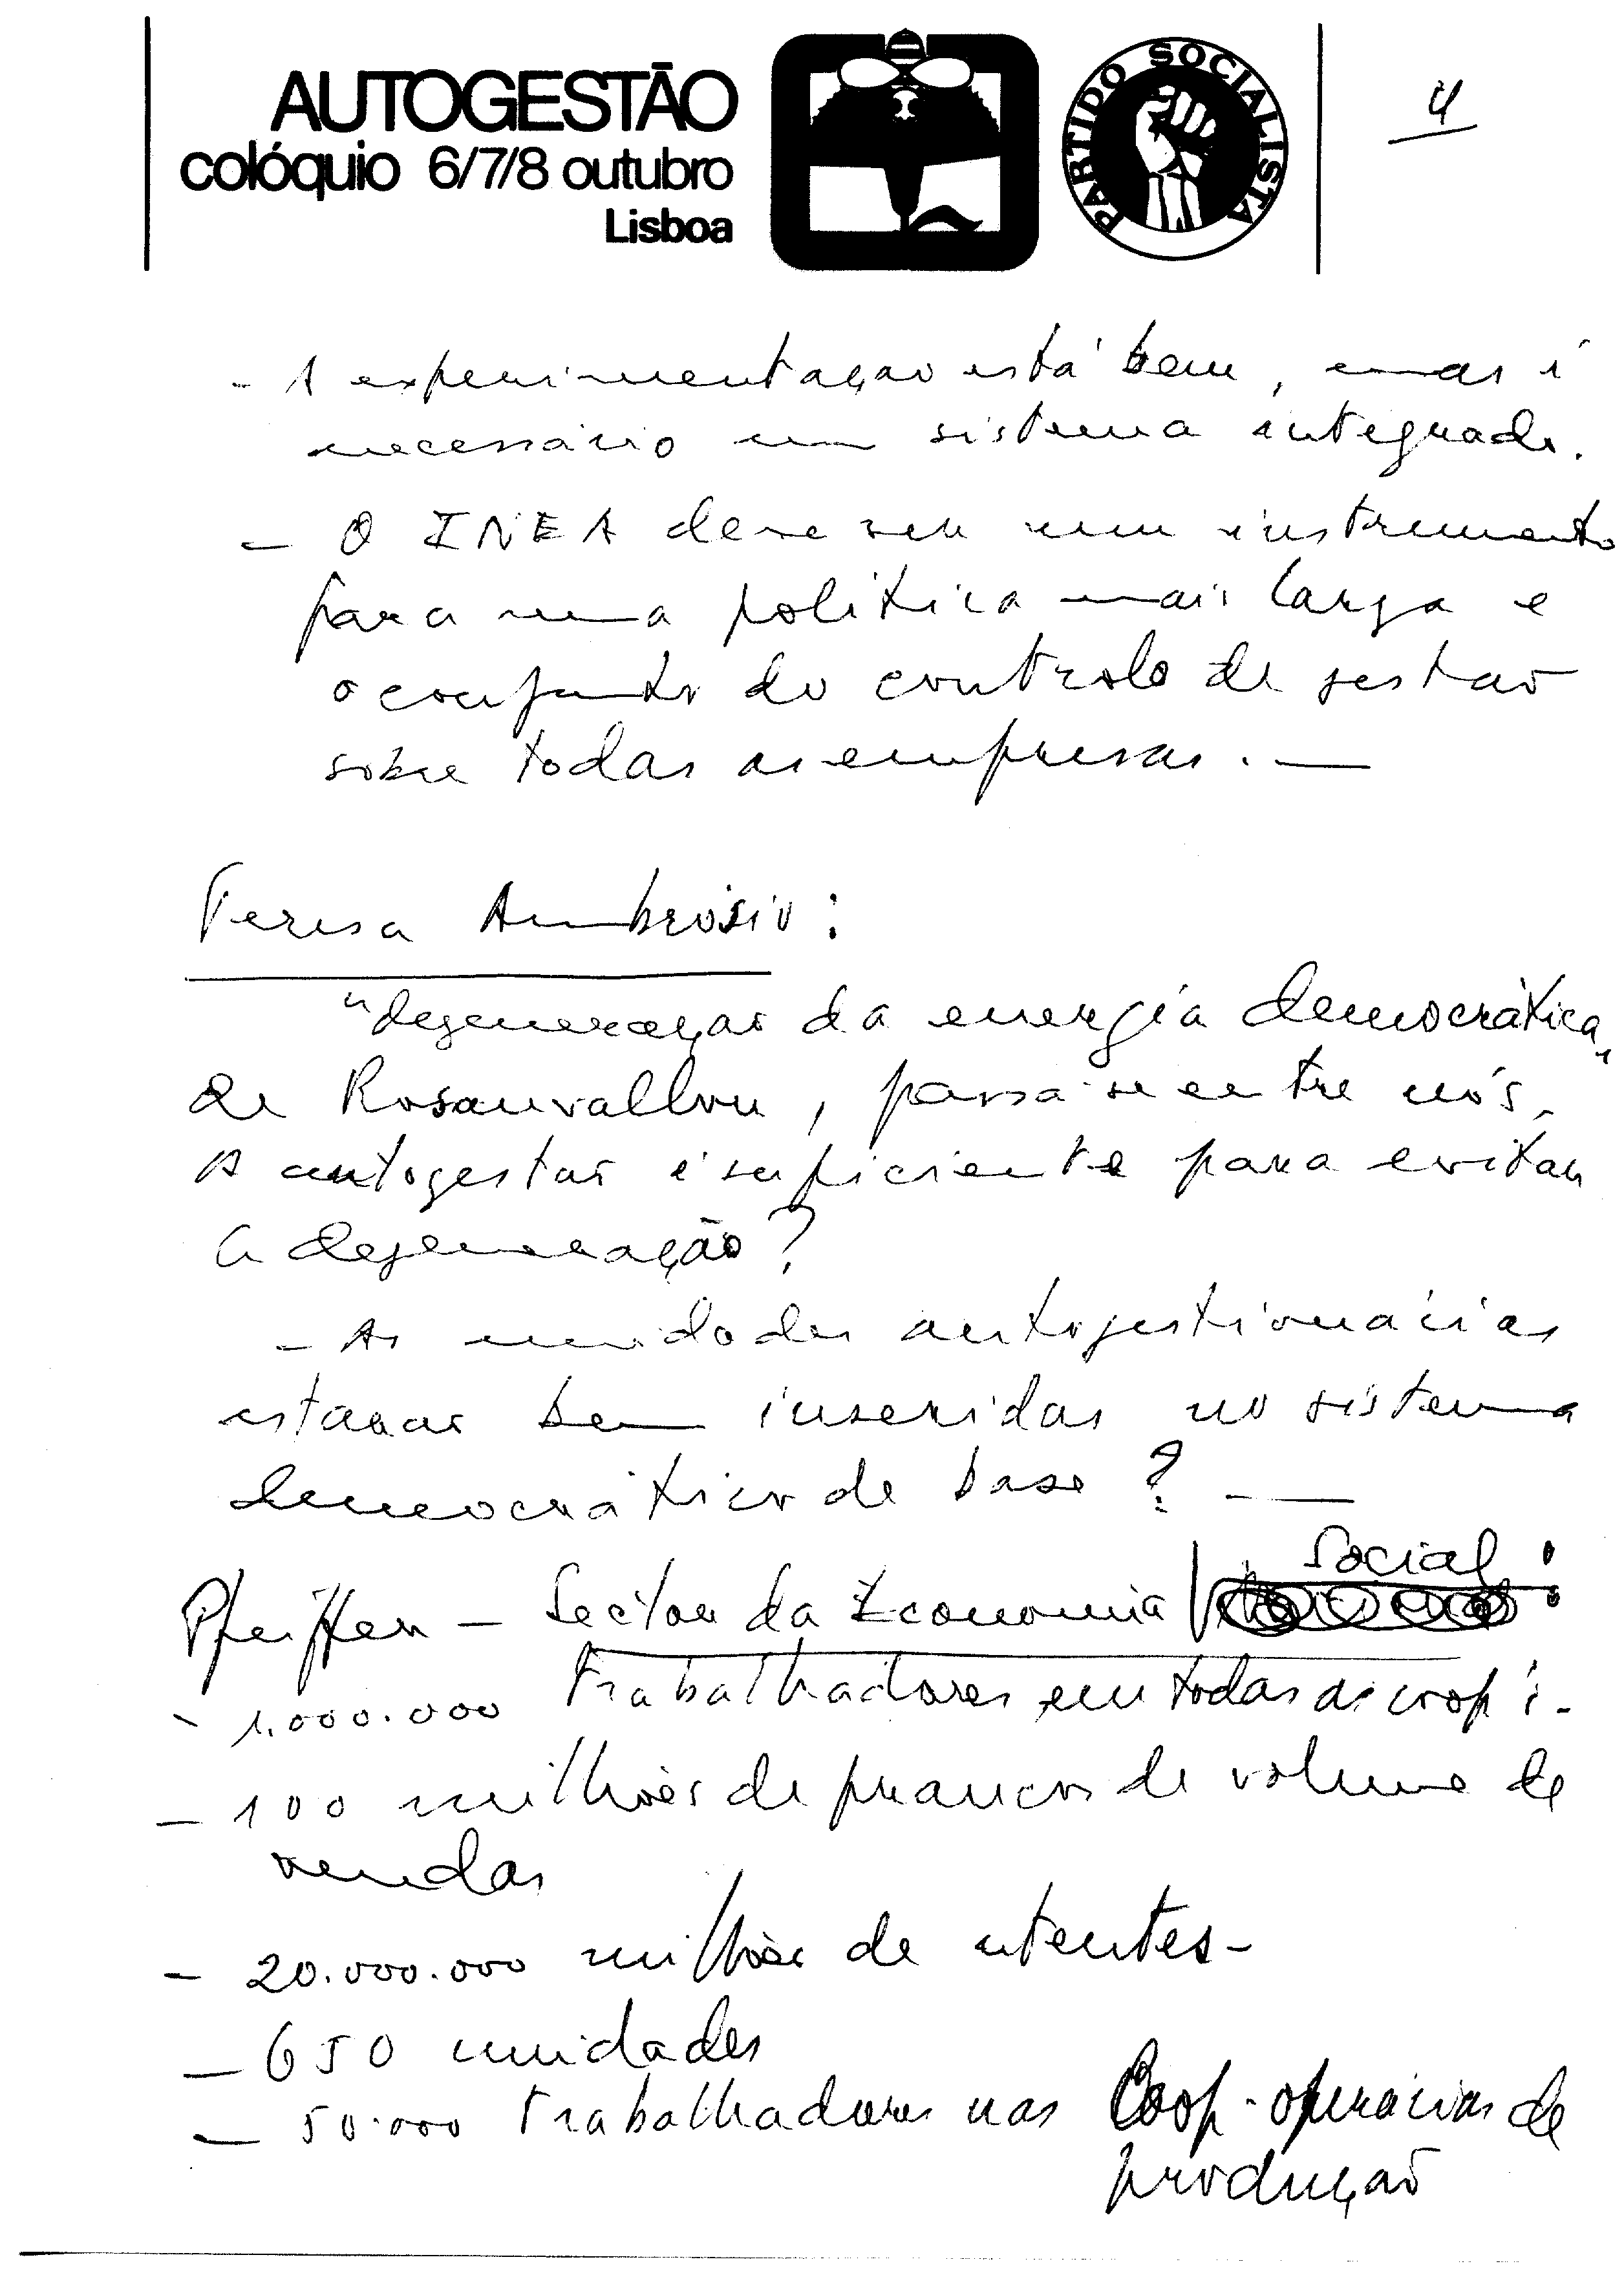 AUTOGESTÃO
colóquio 6/7/8 outubro
Lisboa
PARTIDO SOCIALISTA
4
- A experimentação está bem, mas é
necessário um sistema integrado.
- O INEA deve ser um instrumento
para uma politica mais larga e
o conjunto do controlo de gestão
sobre todas as empresas. —
Teresa Ambrósio:
"degeneração da energia democrática"
de Rosanvallon, passa-se entre nós.
A autogestão é suficiente para evitar
a degeneração?
- As unidades autogestionárias
estarão bem inseridas no sistema
democrático de base? —
Social
Pfeiffer - Sector da Economia :
- 1.000.000 trabalhadores em todas as coop
- 100 milhões de francos de volume de
vendas
- 20.000.000 milhões de utentes -
- 650 unidades
- 50.000 trabalhadores nas Coop. operárias de
produção